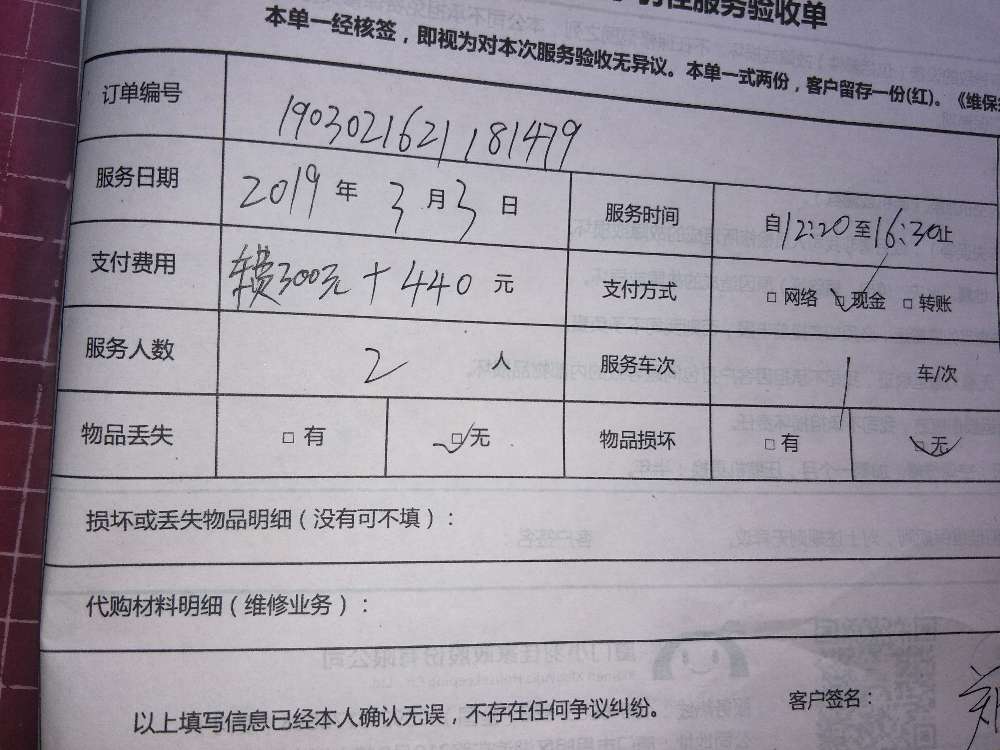 服务验收单
本单一经核签，即视为对本次服务验收无异议。本单一式两份，客户留存一份(红)。《维保
订单编号 1903021621181479
服务日期 2019 年 3 月 3 日 服务时间 自12:20至16:30止
支付费用 车费300元+440 元 支付方式 □ 网络 □ 现金 □ 转账
服务人数 2 人 服务车次 1 车/次
物品丢失 □ 有 □ 无 物品损坏 □ 有 □ 无
损坏或丢失物品明细（没有可不填）：
代购材料明细（维修业务）：
以上填写信息已经本人确认无误，不存在任何争议纠纷。
客户签名：